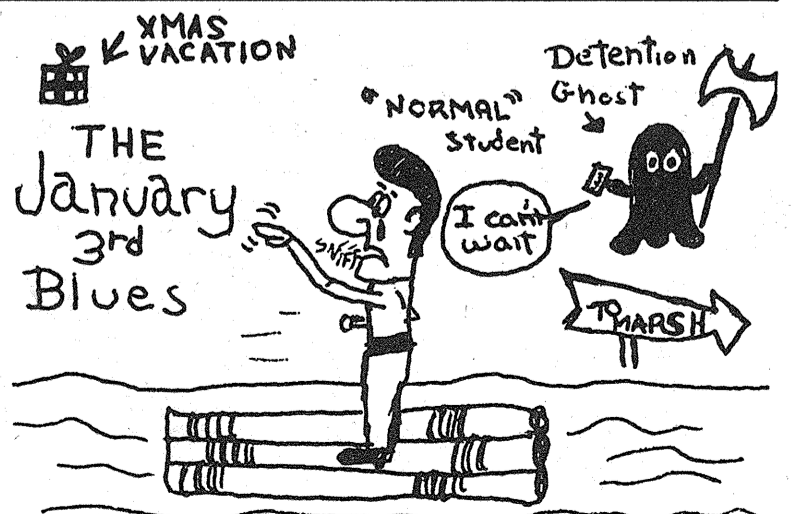 XMAS
VACATION
THE
January
3rd
Blues
"NORMAL"
Student
SNIFF
Detention
Ghost
I can't
wait
TO MARSH